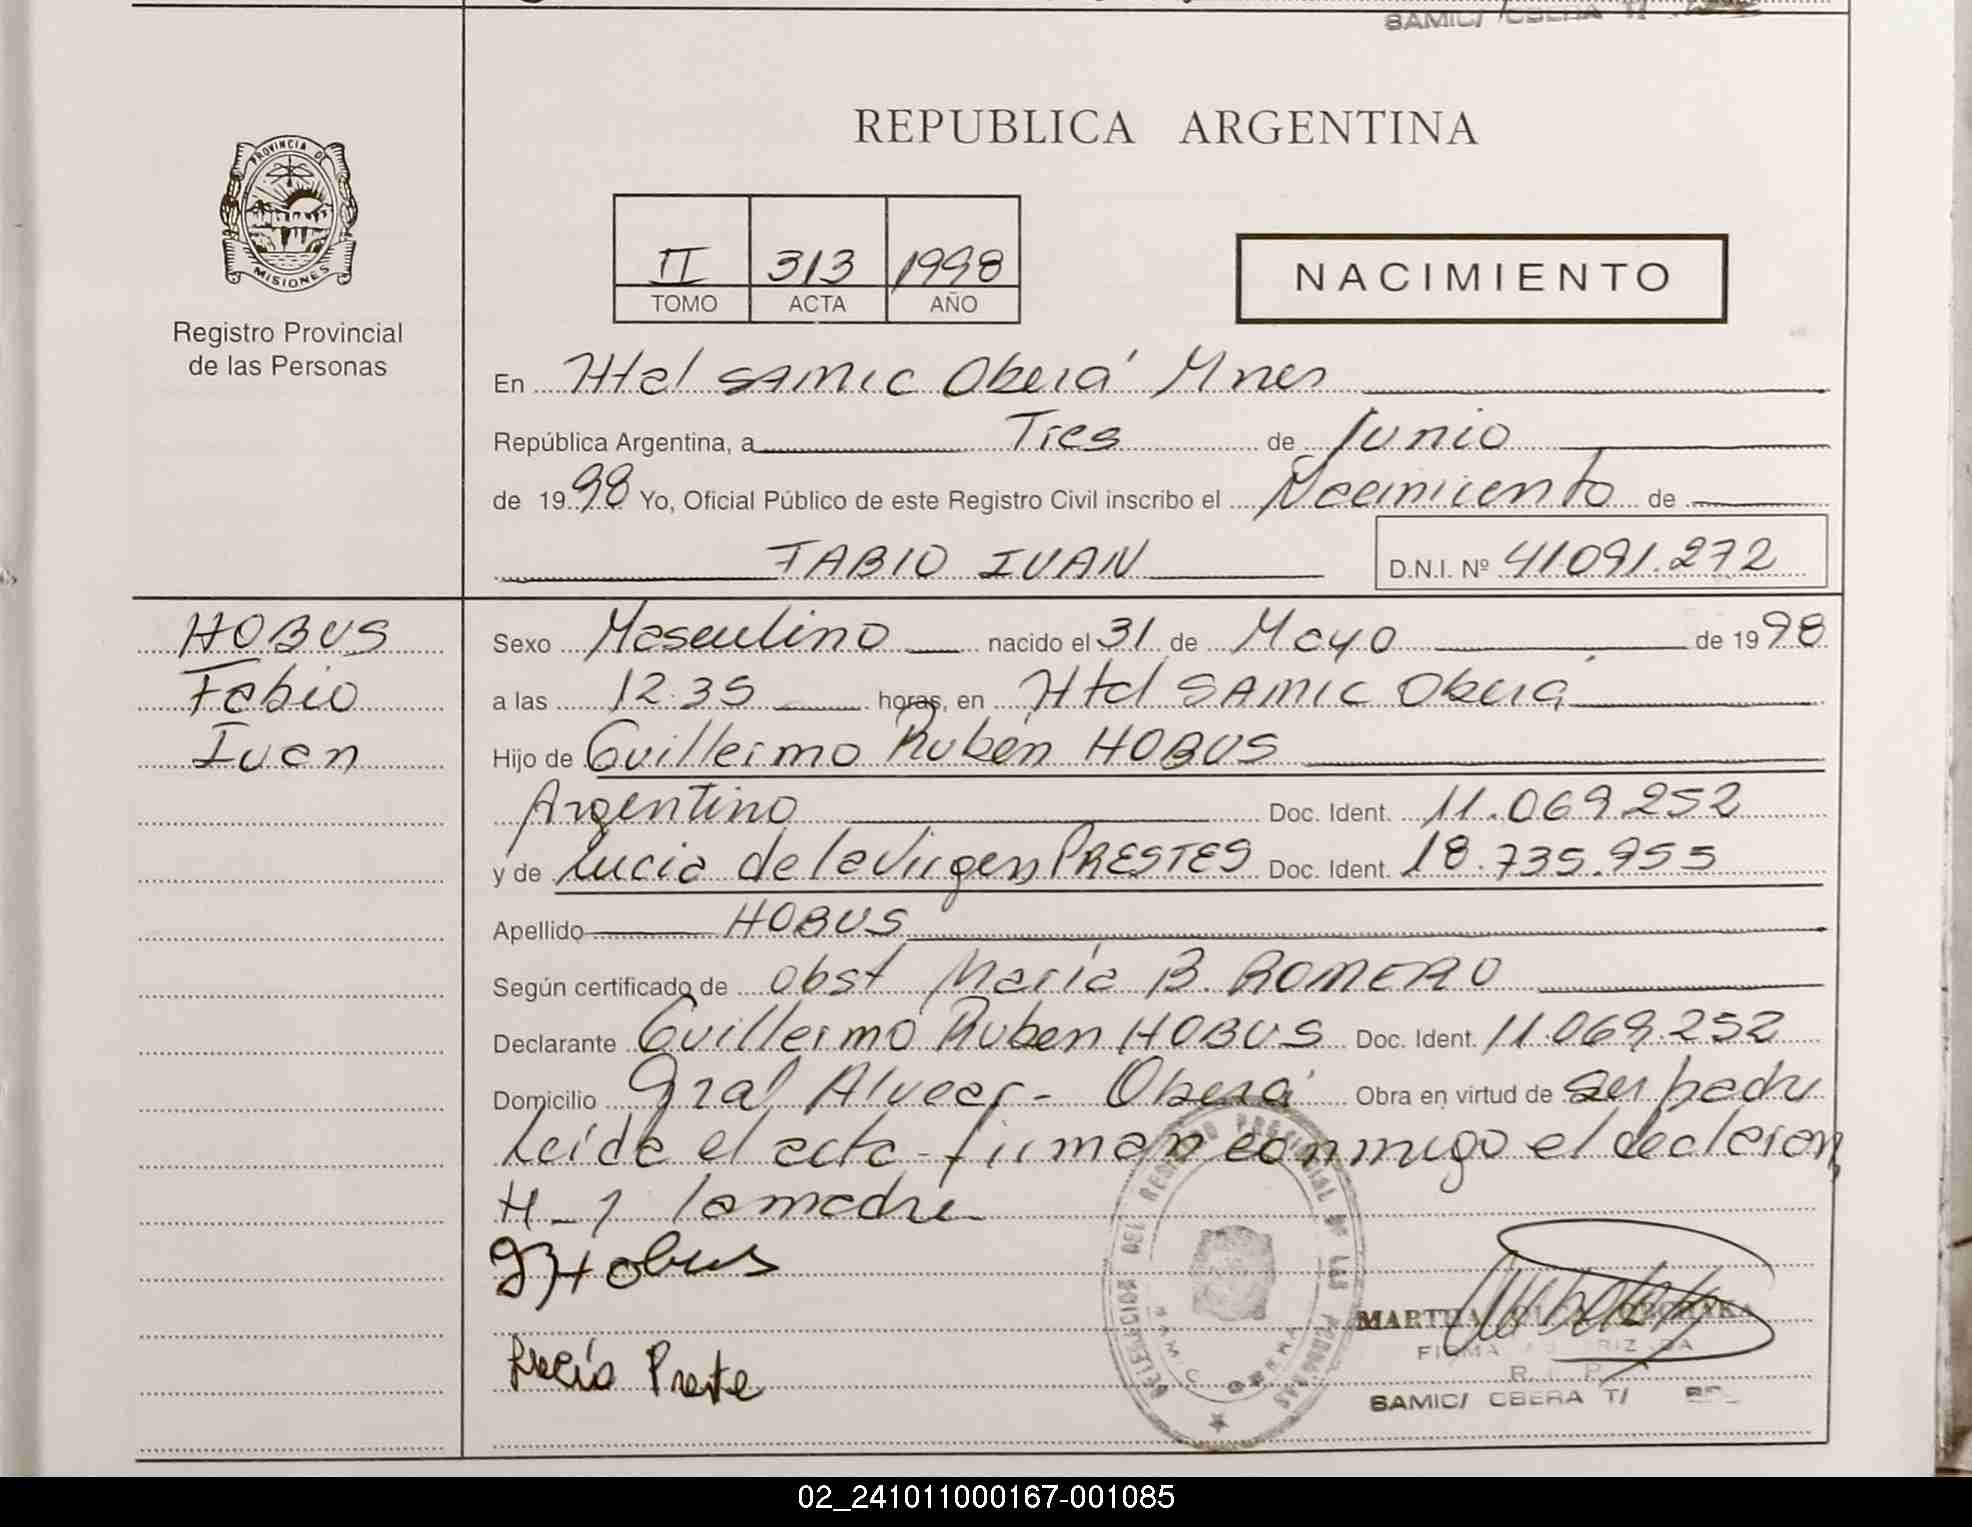 SAMIC/ OBERA T/
REPUBLICA ARGENTINA
PROVINCIA DE
MISIONES
Registro Provincial
de las Personas
II 313 1998
TOMO ACTA AÑO
NACIMIENTO
En Htal SAMIC Oberá Mnes
República Argentina, a Tres de Junio
de 1998 Yo, Oficial Público de este Registro Civil inscribo el Nacimiento de
FABIO IVAN D.N.I. Nº 41.091.272
HOBUS
Fabio
Ivan
Sexo Masculino nacido el 31 de Mayo de 1998
a las 12.35 horas, en Htal SAMIC Oberá
Hijo de Guillermo Rubén HOBUS
Argentino Doc. Ident. 11.069.252
y de Lucia de la Virgen PRESTES Doc. Ident. 18.735.955
Apellido HOBUS
Según certificado de Obst María B. ROMERO
Declarante Guillermo Ruben HOBUS Doc. Ident. 11.069.252
Domicilio Gral Alvear - Oberá Obra en virtud de ser padre
Leída el acta firman conmigo el declaran
te y la madre
G Hobus
Lucía Preste
DELEGACION DEL REGISTRO PROVINCIAL DE LAS PERSONAS
SAMIC OBERA
MARTHA
FIRMA AUTORIZADA
R. P.
SAMIC/ OBERA T/
02_241011000167-001085